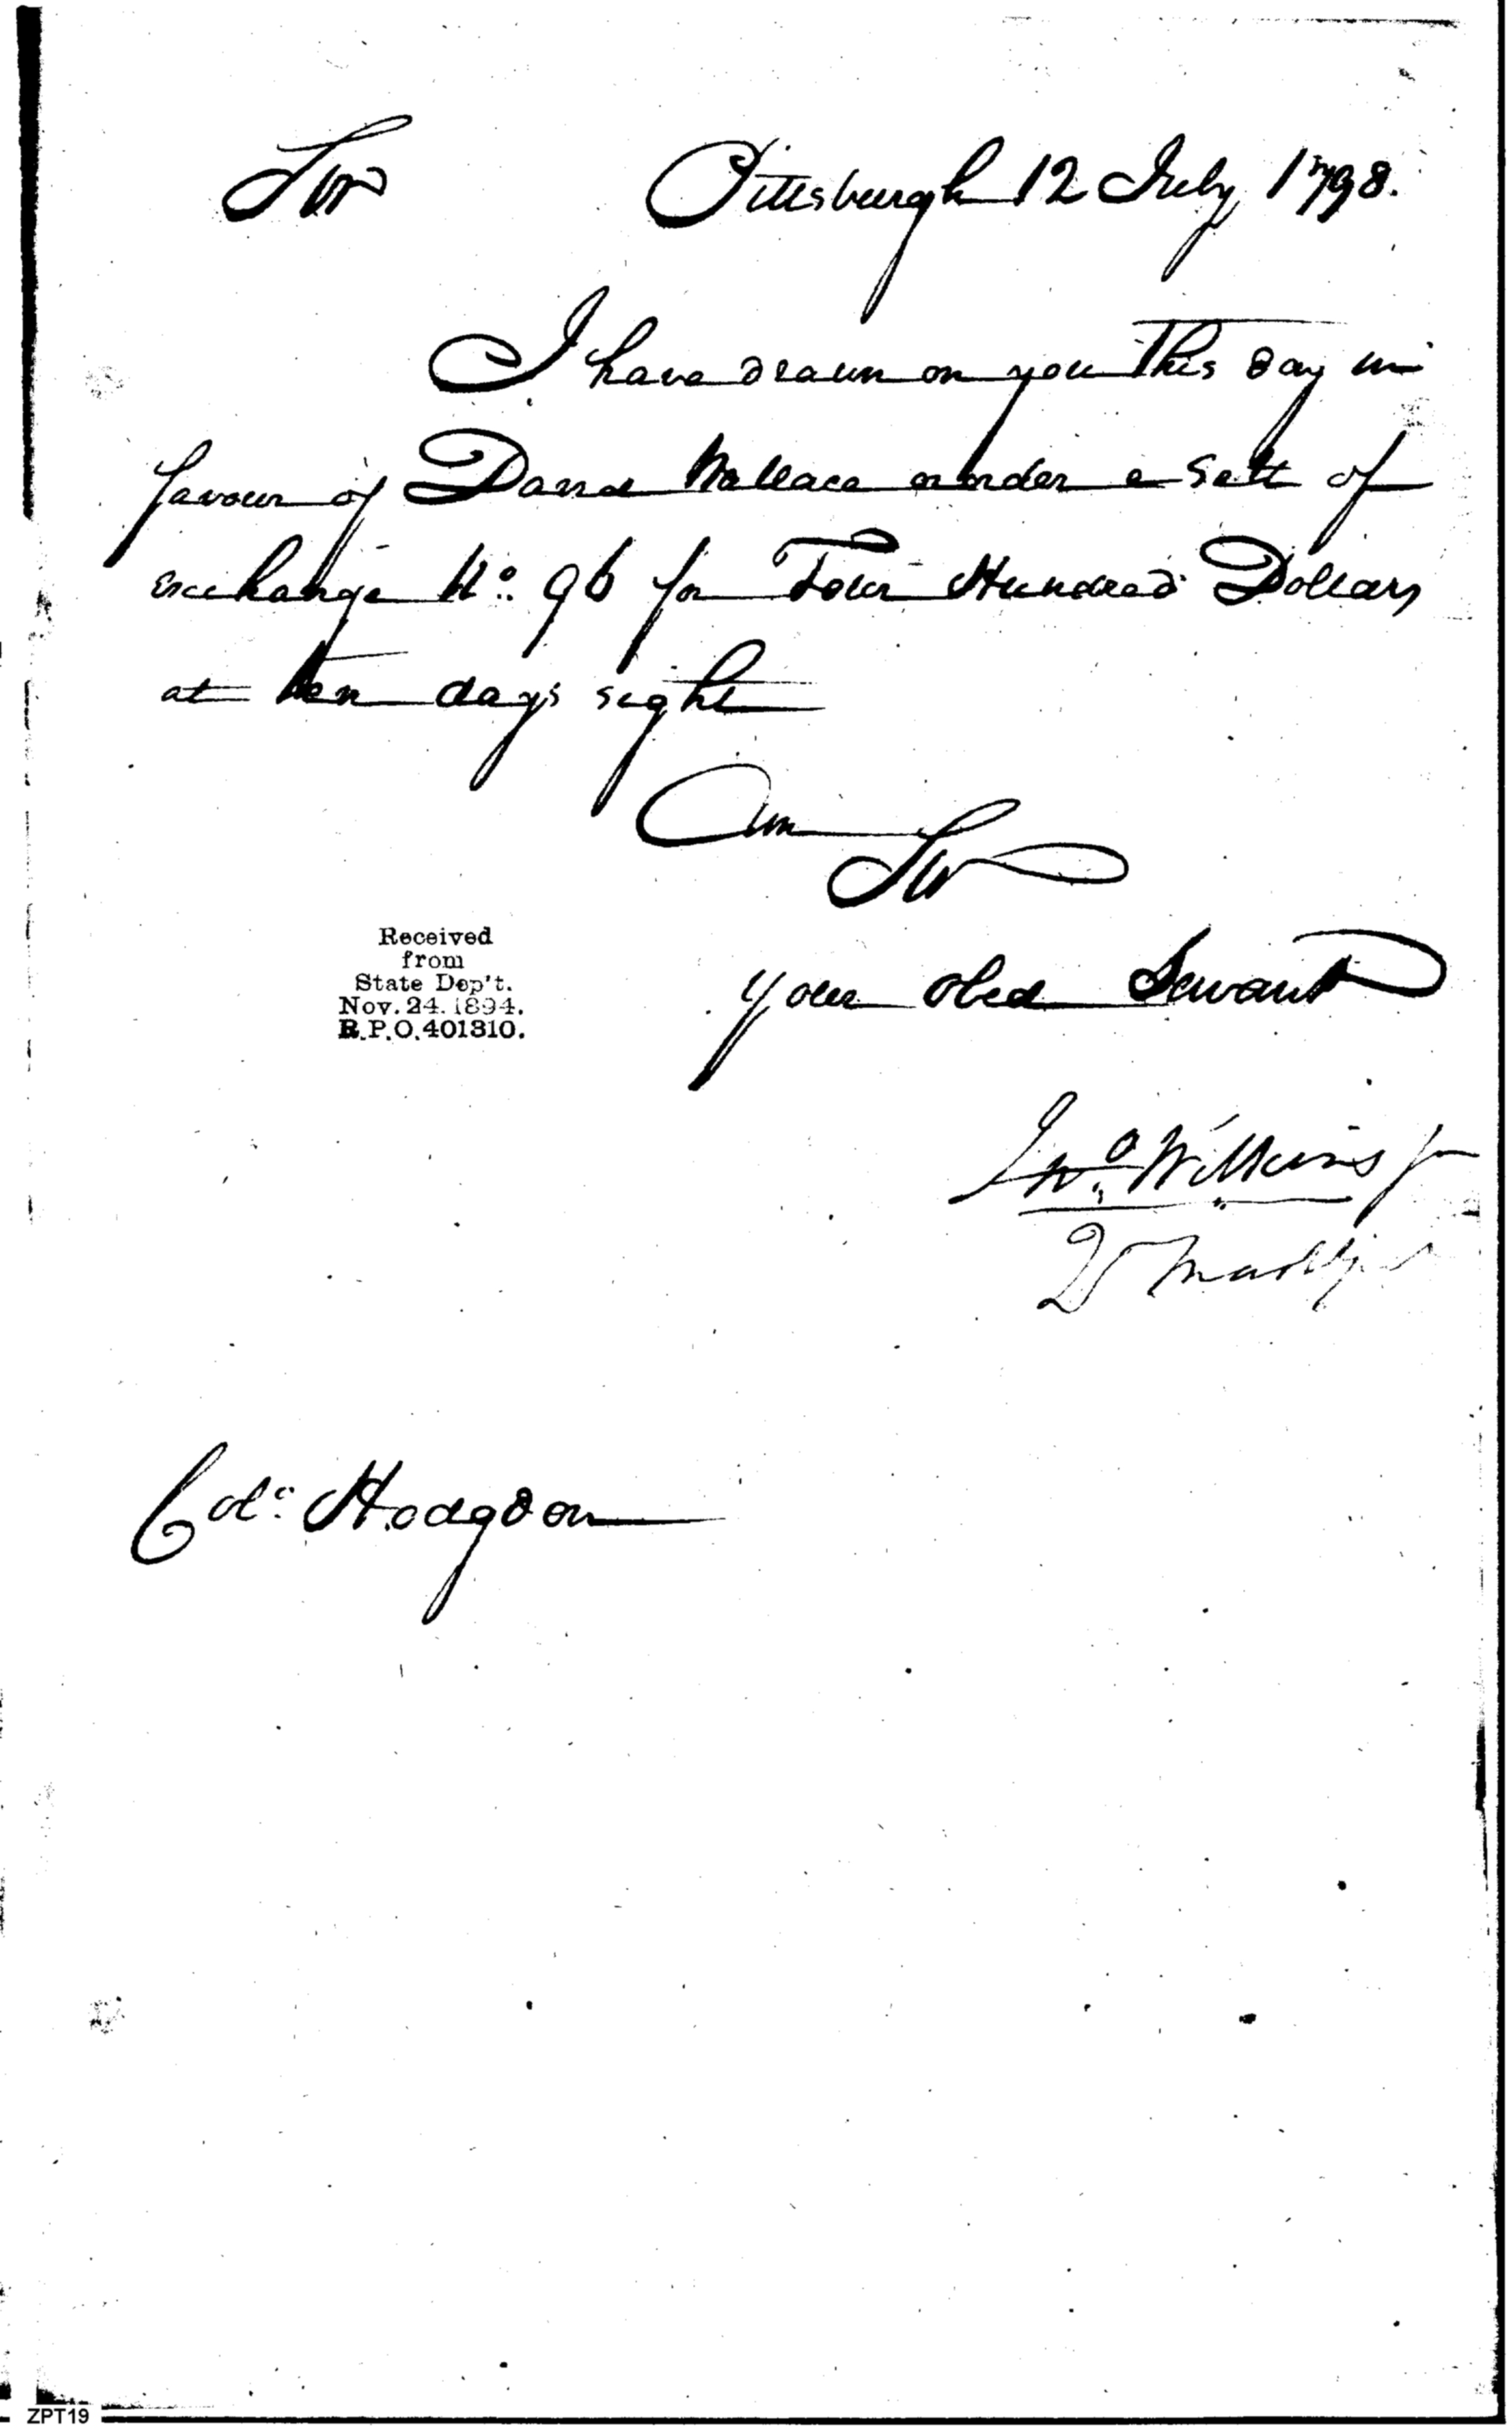 Sir Pittsburgh 12 July 1798.
I have drawn on you this day in
favour of David Wallace or order a Sett of
exchange No. 96 for Four Hundred Dollars
at ten days sight
Am
Sir
your obed Servant
Jno. Wilkins Jr
Received
from
State Dep't.
Nov. 24. 1894.
R.P.O. 401310.
Col. Hodgdon
ZPT19